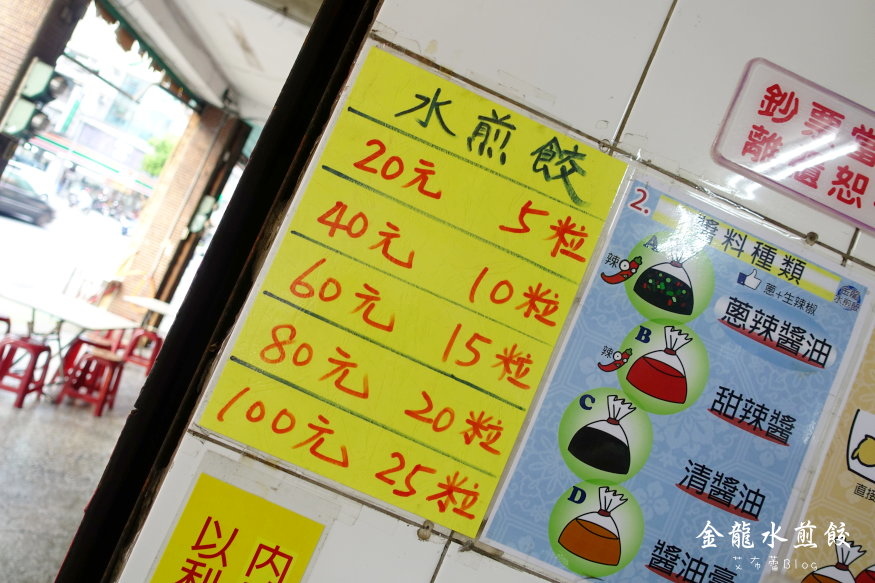 水煎餃
20元 5粒
40元 10粒
60元 15粒
80元 20粒
100元 25粒
2. 醬料種類
A 辣
蔥+生辣椒
蔥辣醬油
B 辣
甜辣醬
C
清醬油
D
醬油膏
鈔票當
離
恕
直接
內
以
利
金龍水煎餃
艾布蕾Blog